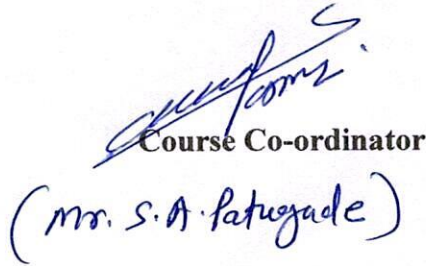 Course Co-ordinator
(Mr. S. A. Patugade)